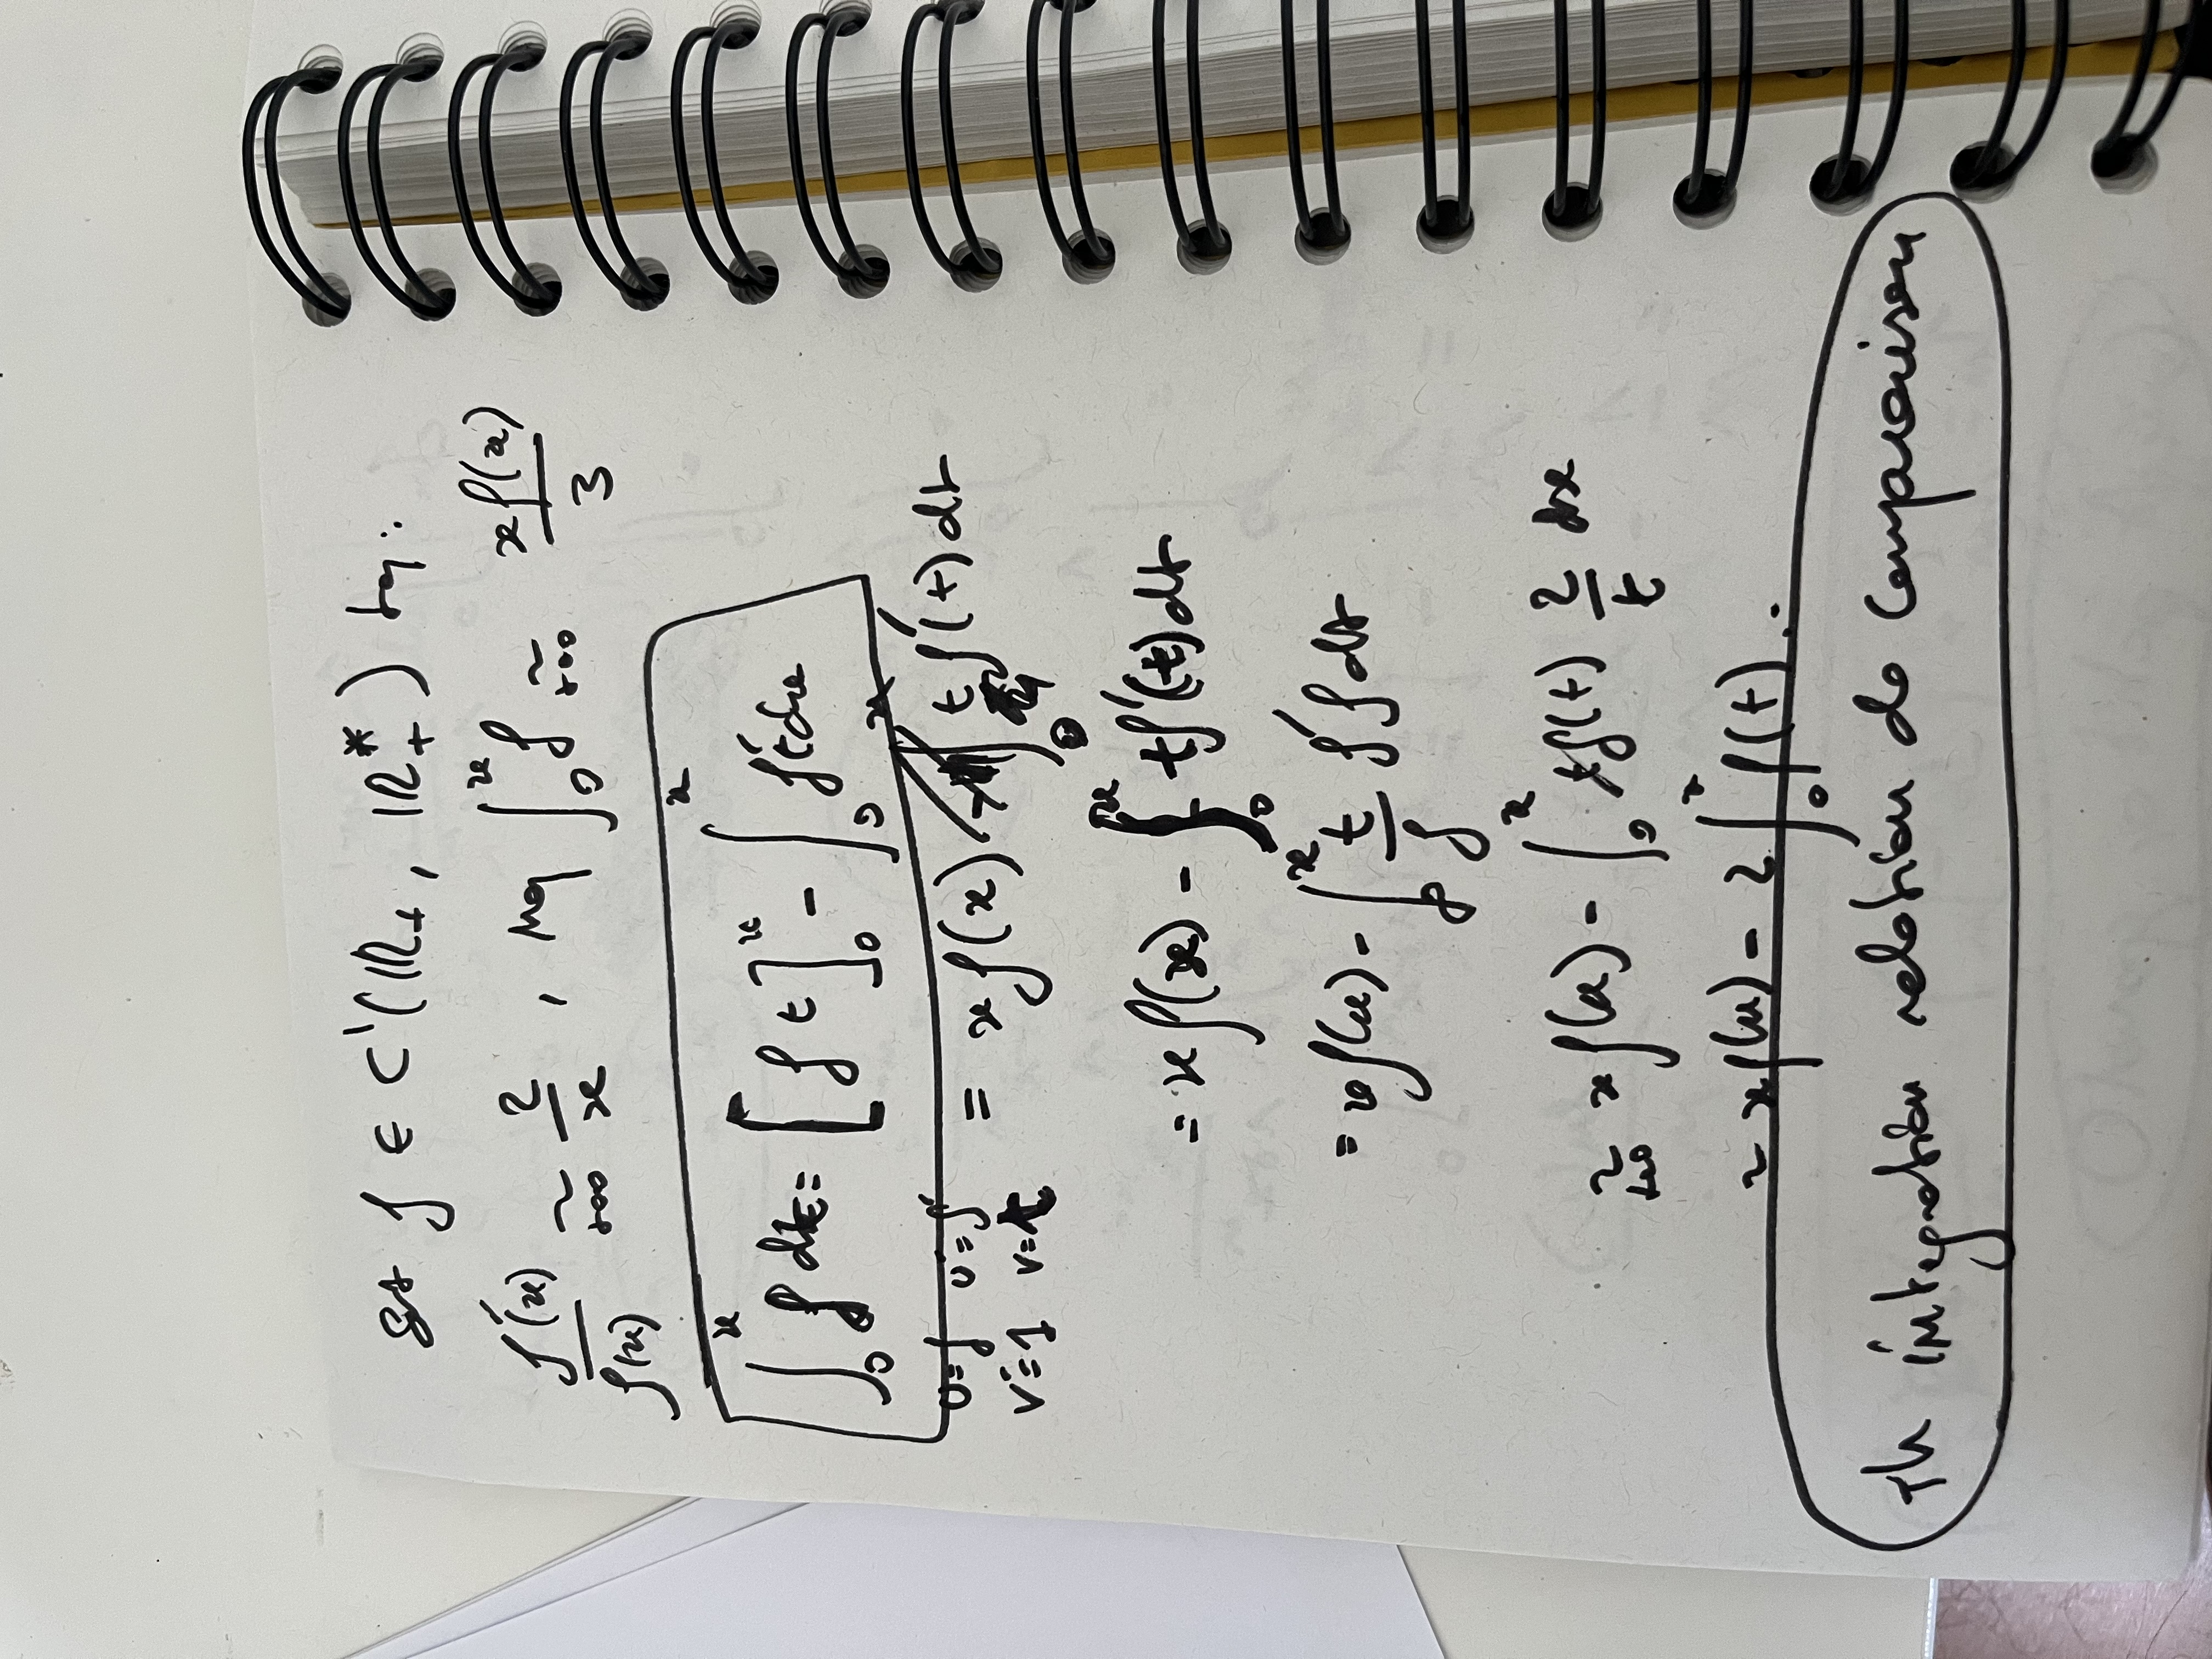 Soit f ∈ C¹(ℝ₊, ℝ₊*) tq :
f'(x)/f(x) ~_{+∞} 2/x , Mq ∫₀ˣ f ~_{+∞} xf(x)/3
∫₀ˣ f dt = [f t]₀ˣ - ∫₀ˣ f't dx
u=f u'=f'
v'=1 v=t
= xf(x) - ∫₀ˣ t f'(t) dt
= xf(x) - ∫₀ˣ tf'(t) dt
= xf(x) - ∫₀ˣ t/f f' f dt
~_{+∞} xf(x) - ∫₀ˣ tf(t) 2/t dx
~ xf(x) - 2 ∫₀ˣ f(t) ..
Th intégration relation de comparaison